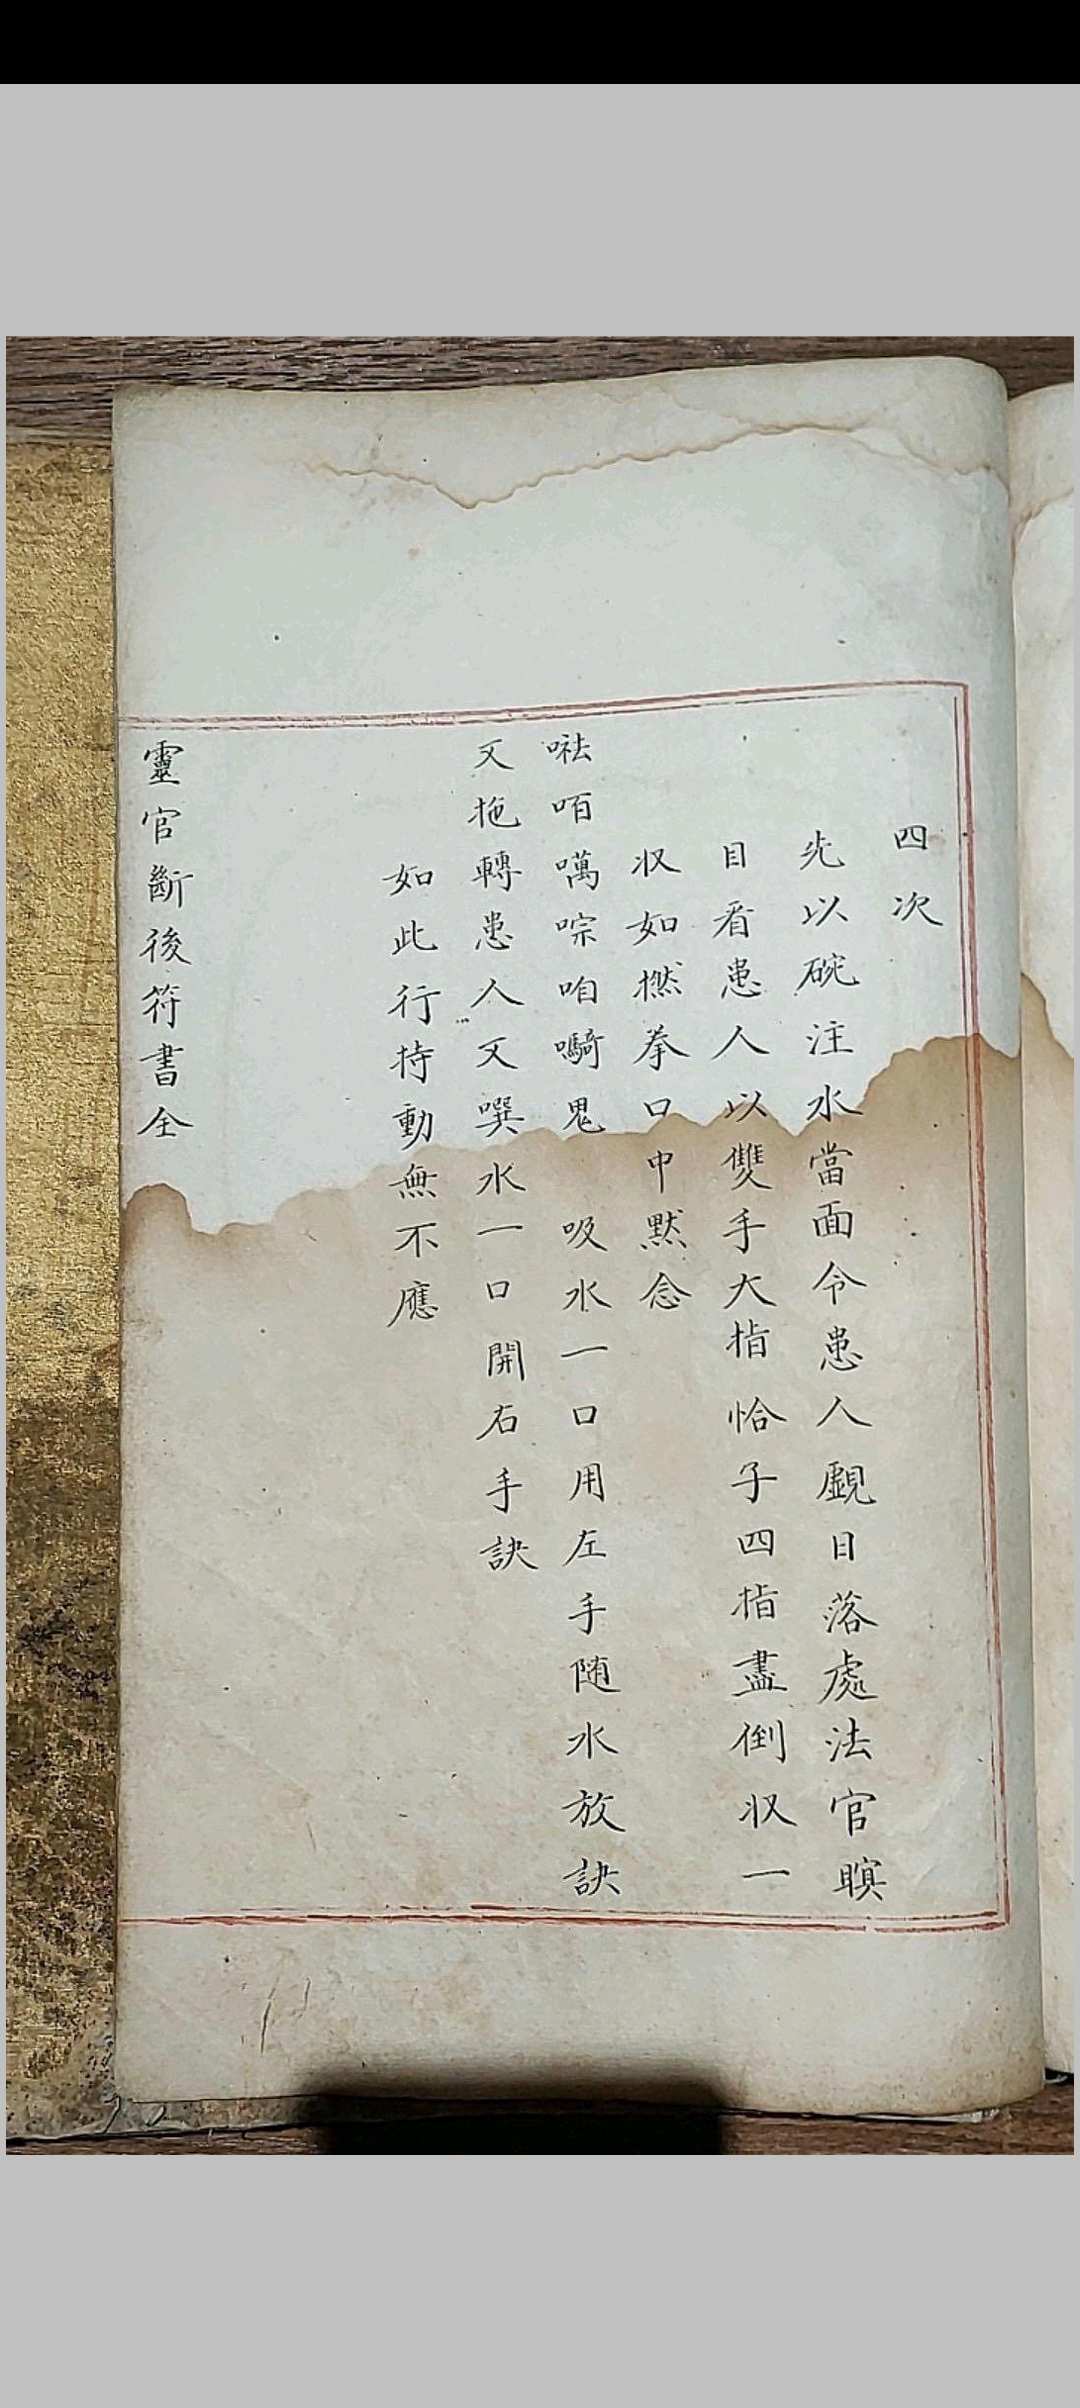 四次
先以碗注水當面令患人覷日落處法官瞑
目看患人以雙手大指恰子四指盡倒収一
収如撚拳口中默念
㗙咟噧㗰咱鬼
吸水一口用左手随水放訣
又拖轉患人又噀水一口開右手訣
如此行持動無不應
靈官斷後符書全